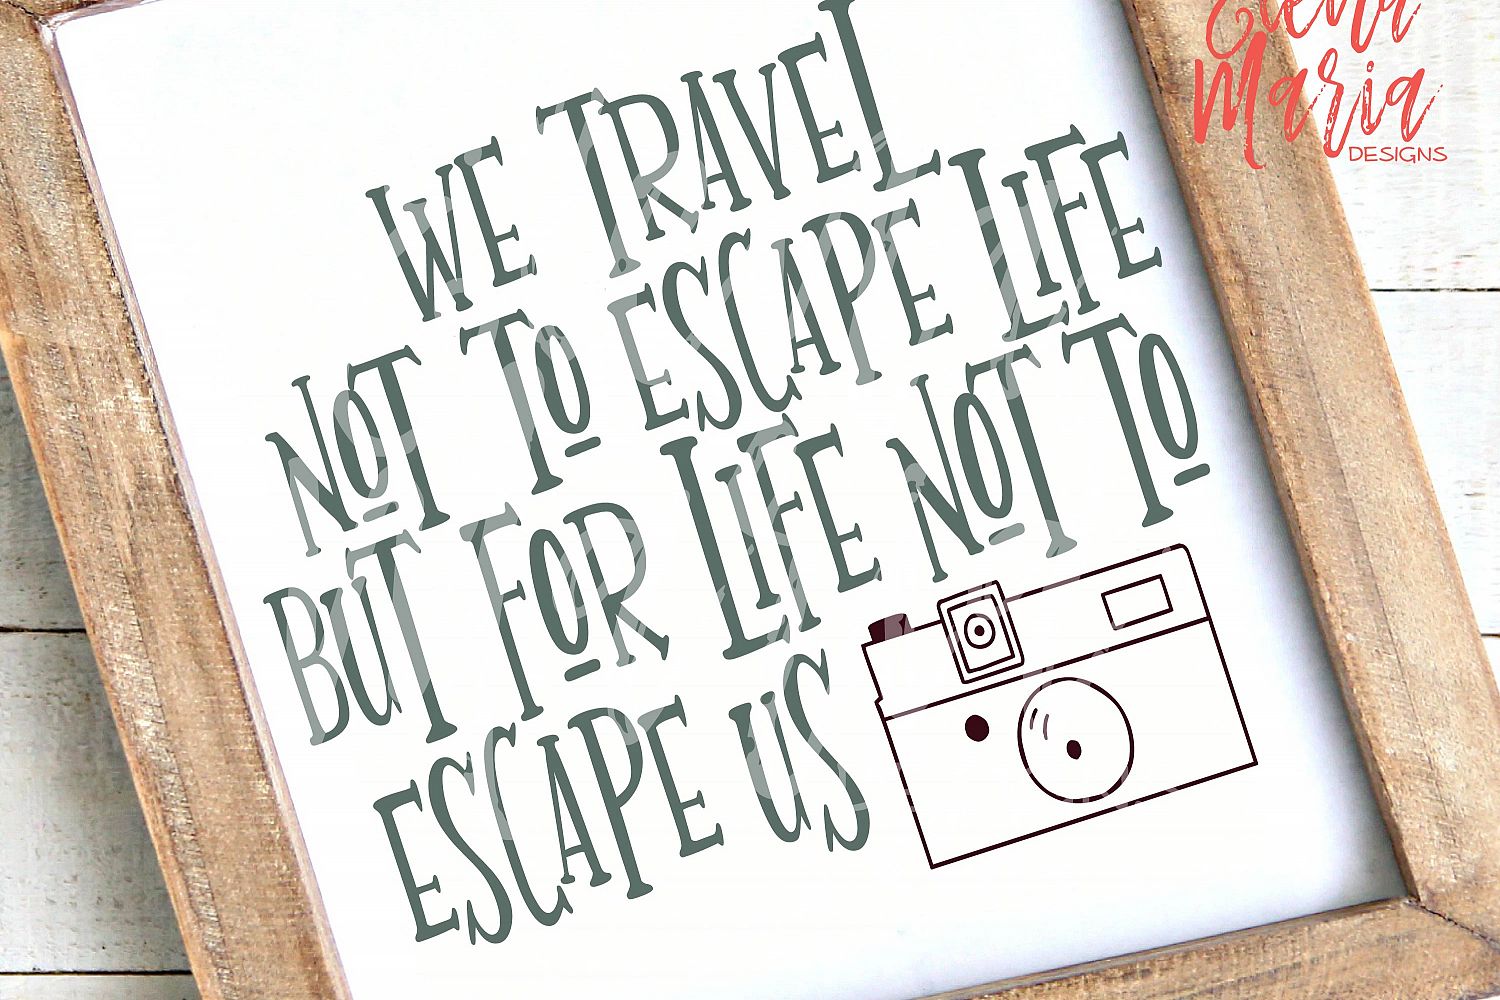 Elena
Maria
DESIGNS
WE TRAVEL
NOT TO ESCAPE LIFE
BUT FOR LIFE NOT TO
ESCAPE US